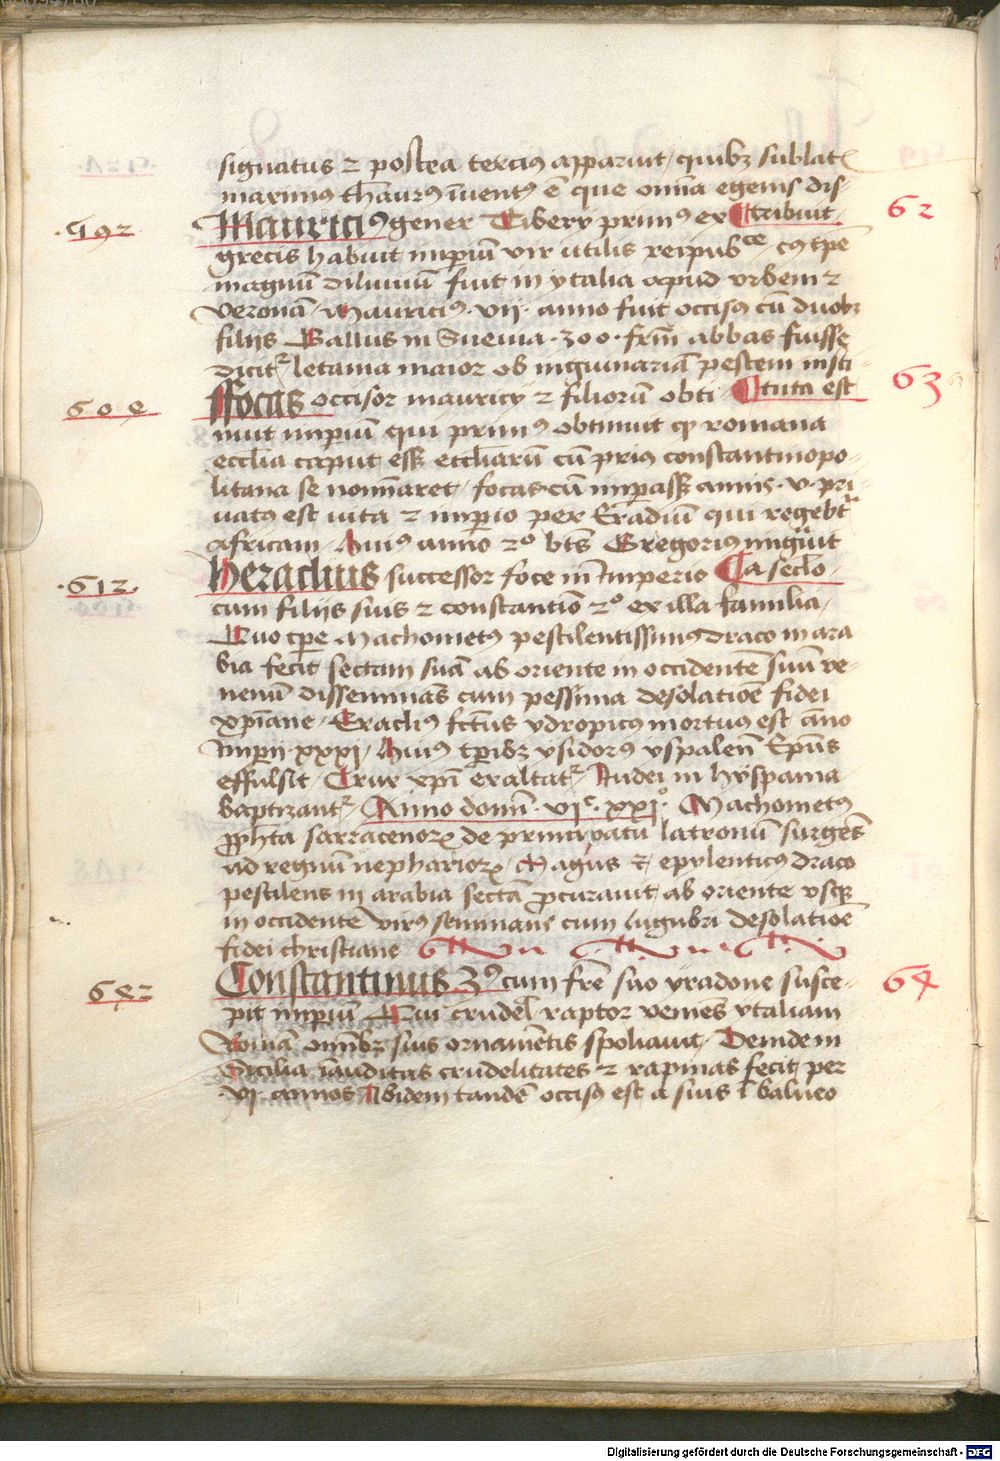 signatus ⁊ postea tercius apparuit, quibꝫ sublatꝭ
maximus thaurꝰ īuentꝰ ē que om̄ia egenis dis-
·592· Mauriciꝰ gener Tiberÿ primꝰ ex ¶ tribuit· 62
grecis habuit imperiū vir utilis reipubce cuiꝰ tp̄e
magnū diluuiū fuit in ytalia apud vrbem ⁊
veronā, Mauriciꝰ· vii· anno fuit occisꝰ cū duobꝫ
filijs Gallus in Sueuia ·300· frm̄ abbas fuisse
dicitᷣ letania maior ob inguinariā pestem insti-
60e ffocas occisor mauricÿ ⁊ filiorū obti- ¶ tuta est 63
nuit imperiū qui primꝰ obtinuit qꝫ romana
ecclīa caput essꝫ eccliarū cū prius constantinopo-
litana se nominaret, focas cū imperassꝫ annis· v· pri-
uatꝰ est uita ⁊ imperio per Eradiū qui regebat
affricam, Huiꝰ anno 2º btūs Gregorius migrauit
·612· Heraclius successor foce in Imperio ¶ a seclo·
cum filijs suis ⁊ constantino 2º ex illa familia,
Quo tp̄e Machometꝰ pestilentissimus draco in ara
bia fecit sectam suā ab oriente in occidentē suū ve-
nenū disseminās cum pessima desolatiōe fidei
xp̄iane, Eraclius fctūs ydropicus mortuus est anno
imperii xxxj, Huiꝰ tp̄ibꝫ ysidorꝰ yspaleñ Ep̄us
effulsit, Crux xp̄i exaltatᷣ Iudei in hÿspania
baptizantᷣ, Anno domini· vjᶜ· xxjº· Machometꝰ
ꝓph̄ta sarracenorꝝ de principatu latronū surgēs
ad regnū nephariorꝝ, Magus ⁊ epylenticus draco
pestilens in arabia sectā ꝓcurauit, ab oriente vsqꝫ
in occidente virus seminans cum lugubri desolatiōe
fidei christiane
64z Constantinus 3ꝰ cum fr̄e suo yradone susce- 64
pit imperiū Qui crudel' raptor veniēs ytaliam
Romā omnibꝫ suis ornamētis spoliauit, Deinde in
Sicilia īauditas crudelitates ⁊ rapinas fecit per
·vj· annos Ibidem tandē occisꝰ est a suis ī balneo
Digitalisierung gefördert durch die Deutsche Forschungsgemeinschaft - DFG